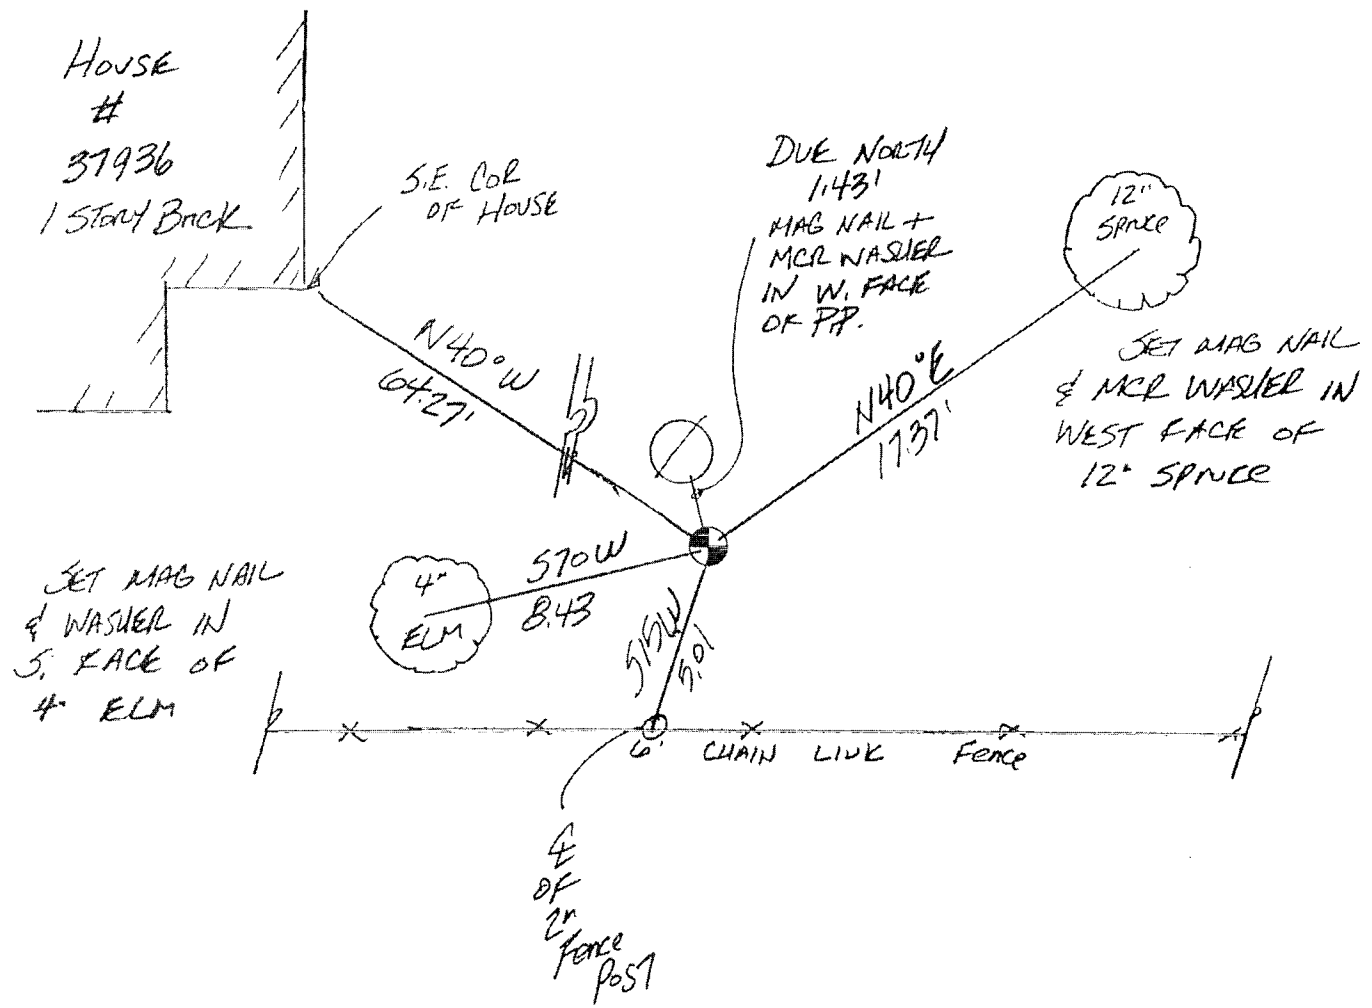 HOUSE
#
37936
1 STORY BRICK
S.E. COR
OF HOUSE
DUE NORTH
1.43'
MAG NAIL +
MCR WASHER
IN W. FACE
OF PP.
12"
SPRUCE
SET MAG NAIL
& MCR WASHER IN
WEST FACE OF
12" SPRUCE
N40°W
64.27'
N40°E
17.37'
SET MAG NAIL
& WASHER IN
S. FACE OF
4" ELM
4"
ELM
S70W
8.43
S15W
5.01
6' CHAIN LINK Fence
℄
OF
2"
Fence
POST